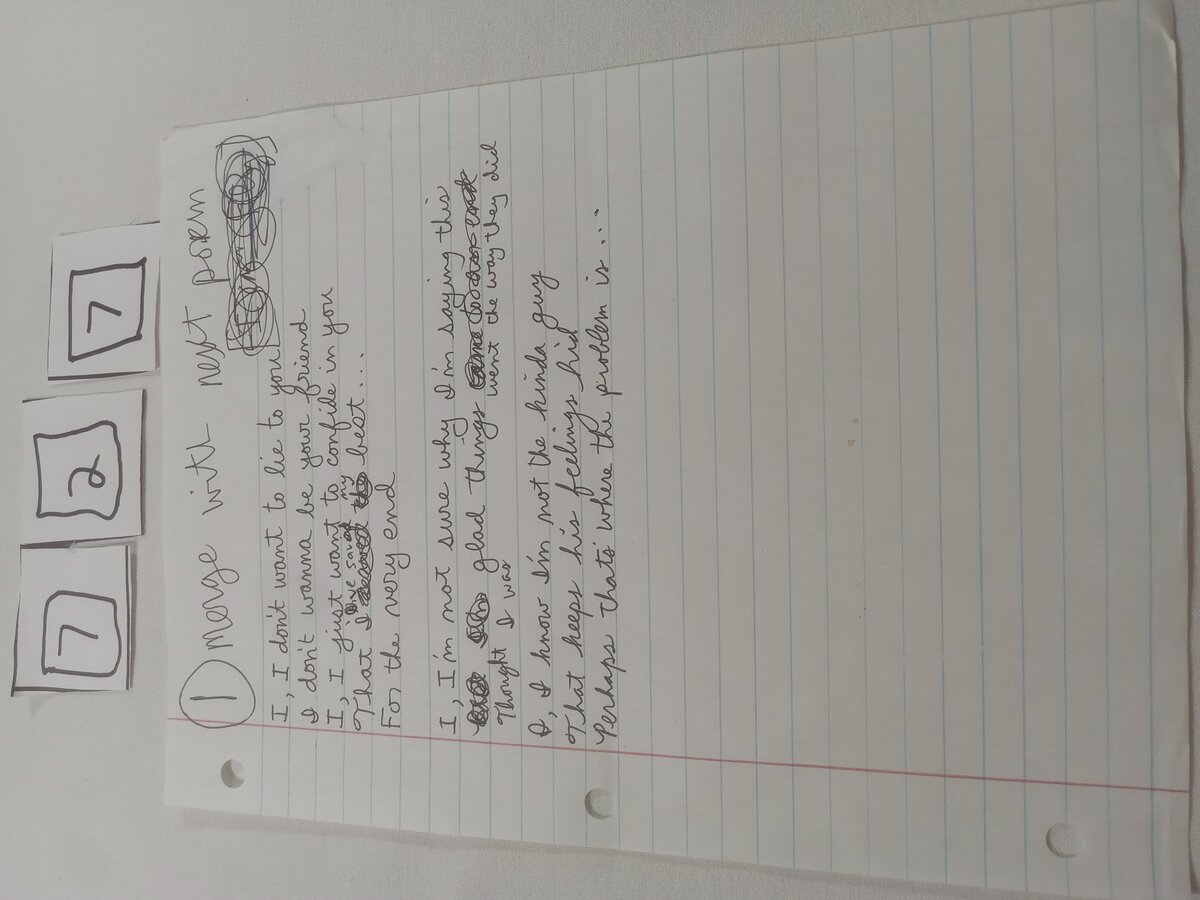 7 2 7
1 merge with next poem
I, I don't want to lie to you
I don't wanna be your friend
I, I just want to confide in you
That I've saved my best...
For the very end
I, I'm not sure why I'm saying this
Thought I was glad things went the way they did
I, I know I'm not the kinda guy
That keeps his feelings hid
Perhaps that's where the problem is...